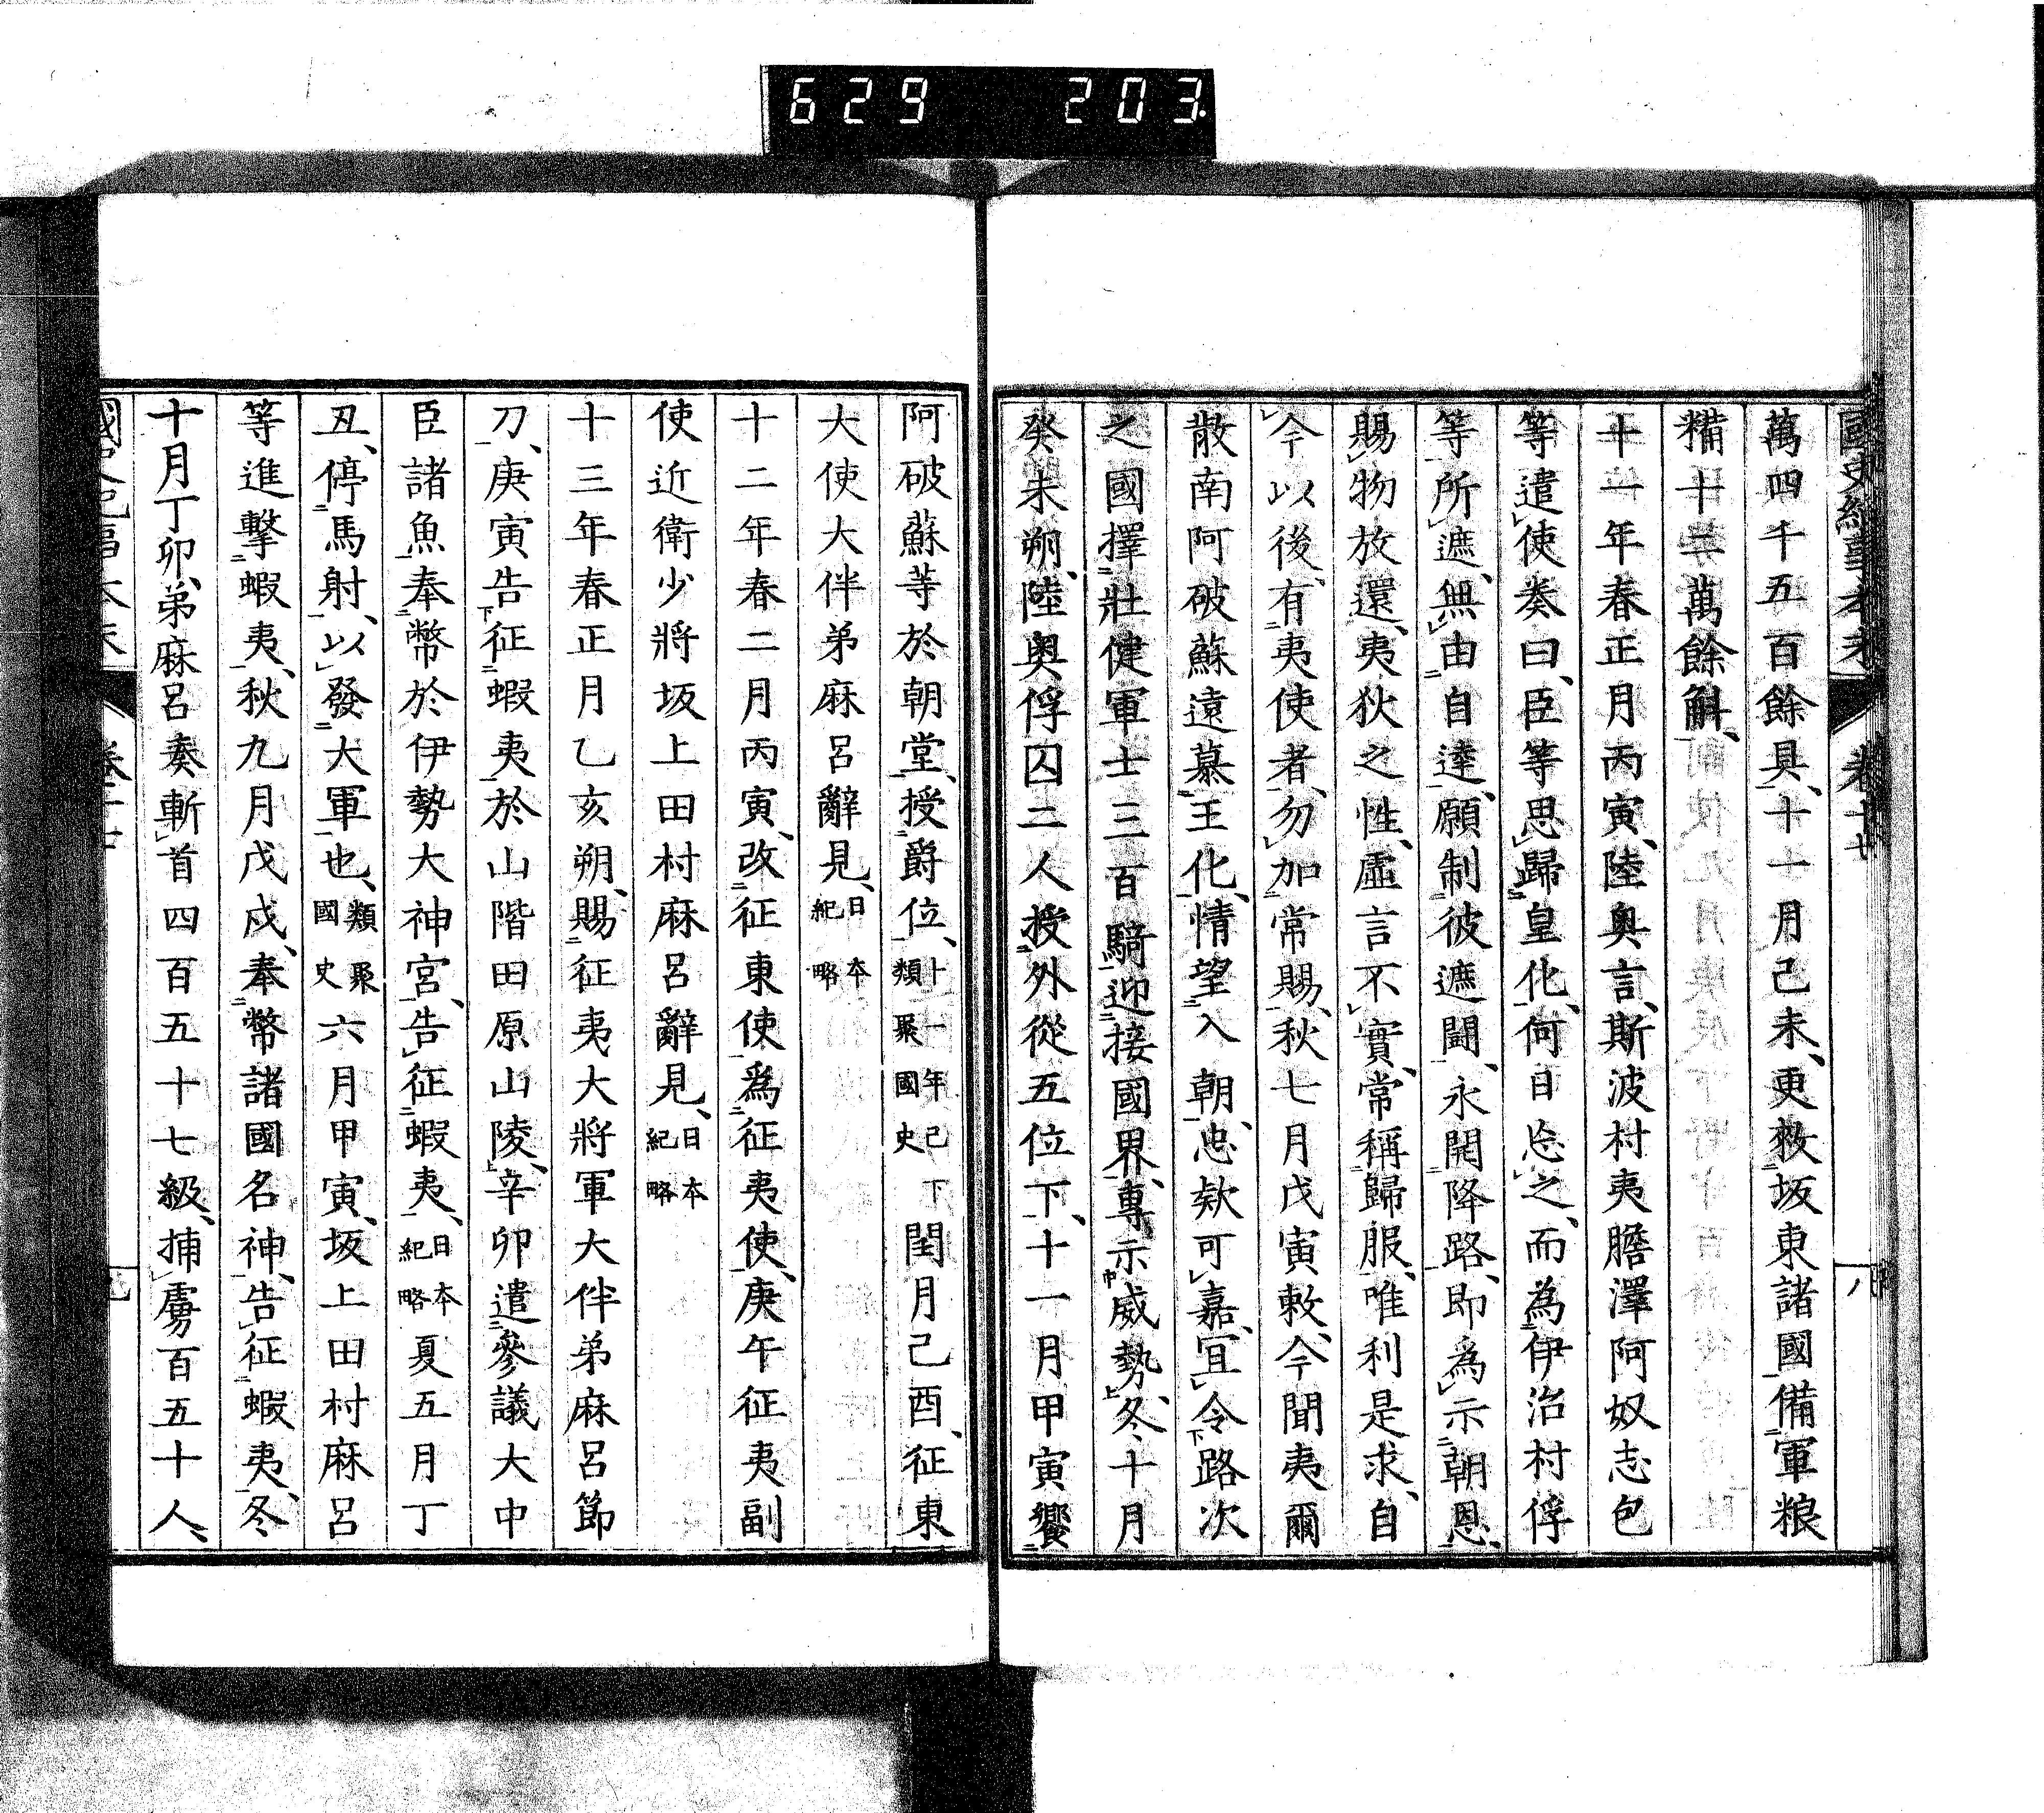 629 203
國史紀事本末 卷十七 八
萬四千五百餘具、十一月己未、更敕坂東諸國備軍粮
糒十二萬餘斛、
十一年春正月丙寅、陸奥言、斯波村夷膽澤阿奴志己
等遣使奏曰、臣等思歸皇化、何日忘之、而為伊治村俘
等所遮、無由自達、願制彼遮闘、永開降路、即為示朝恩、
賜物放還、夷狄之性、虛言不實、常稱歸服、唯利是求、自
今以後、有夷使者、勿加常賜、秋七月戊寅敕、今聞夷爾
散南阿破蘇遠慕王化、情望入朝、忠欵可嘉、宜令路次
之國擇壯健軍士三百騎迎接國界、專示威勢、冬十月
癸未朔、陸奥俘囚二人授外從五位下、十一月甲寅饗
阿破蘇等於朝堂、授爵位、十一年已下類聚國史閏月己酉、征東
大使大伴弟麻呂辭見、日本紀略
十二年春二月丙寅、改征東使為征夷使、庚午征夷副
使近衛少將坂上田村麻呂辭見、日本紀略
十三年春正月乙亥朔、賜征夷大將軍大伴弟麻呂節
刀、庚寅告征蝦夷於山階田原山陵、辛卯遣參議大中
臣諸魚奉幣於伊勢大神宮、告征蝦夷、日本紀略夏五月丁
丑、停馬射、以發大軍也、類聚國史六月甲寅、坂上田村麻呂
等進擊蝦夷、秋九月戊戌、奉幣諸國名神、告征蝦夷、冬
十月丁卯、弟麻呂奏斬首四百五十七級、捕虜百五十人、